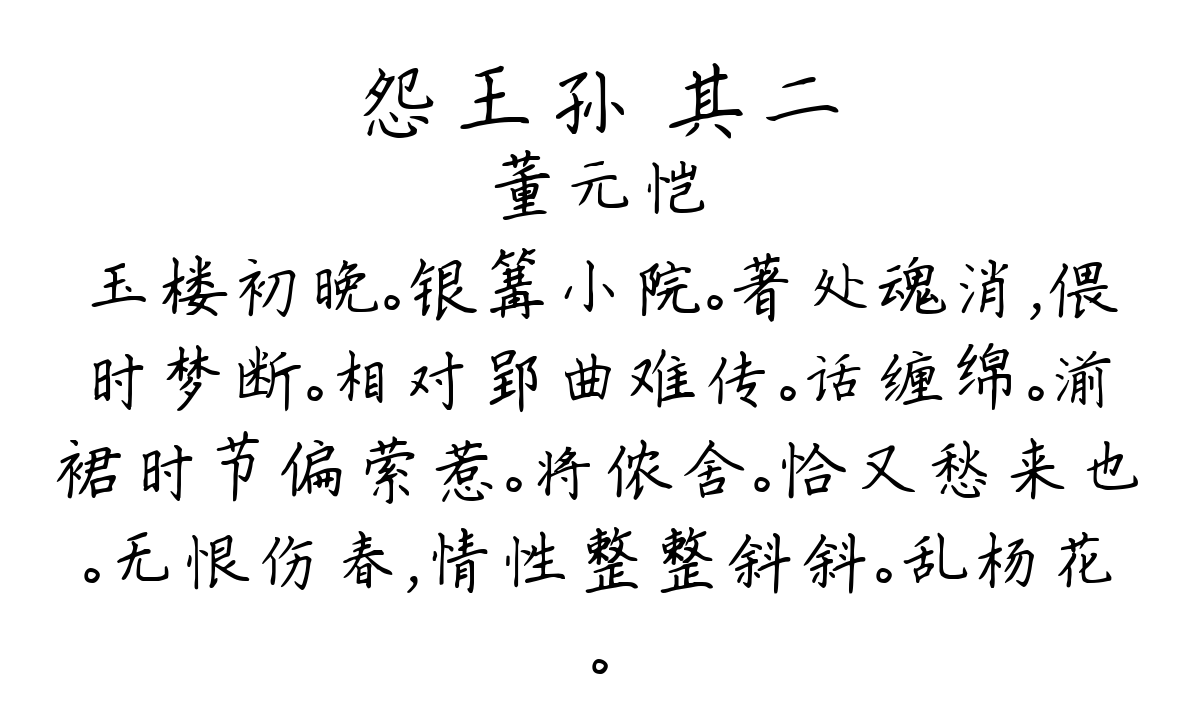 怨王孙 其二
董元恺
玉楼初晚。银篝小院。著处魂消,偎
时梦断。相对郢曲难传。话缠绵。湔
裙时节偏萦惹。将侬舍。恰又愁来也
。无恨伤春,情性整整斜斜。乱杨花
。